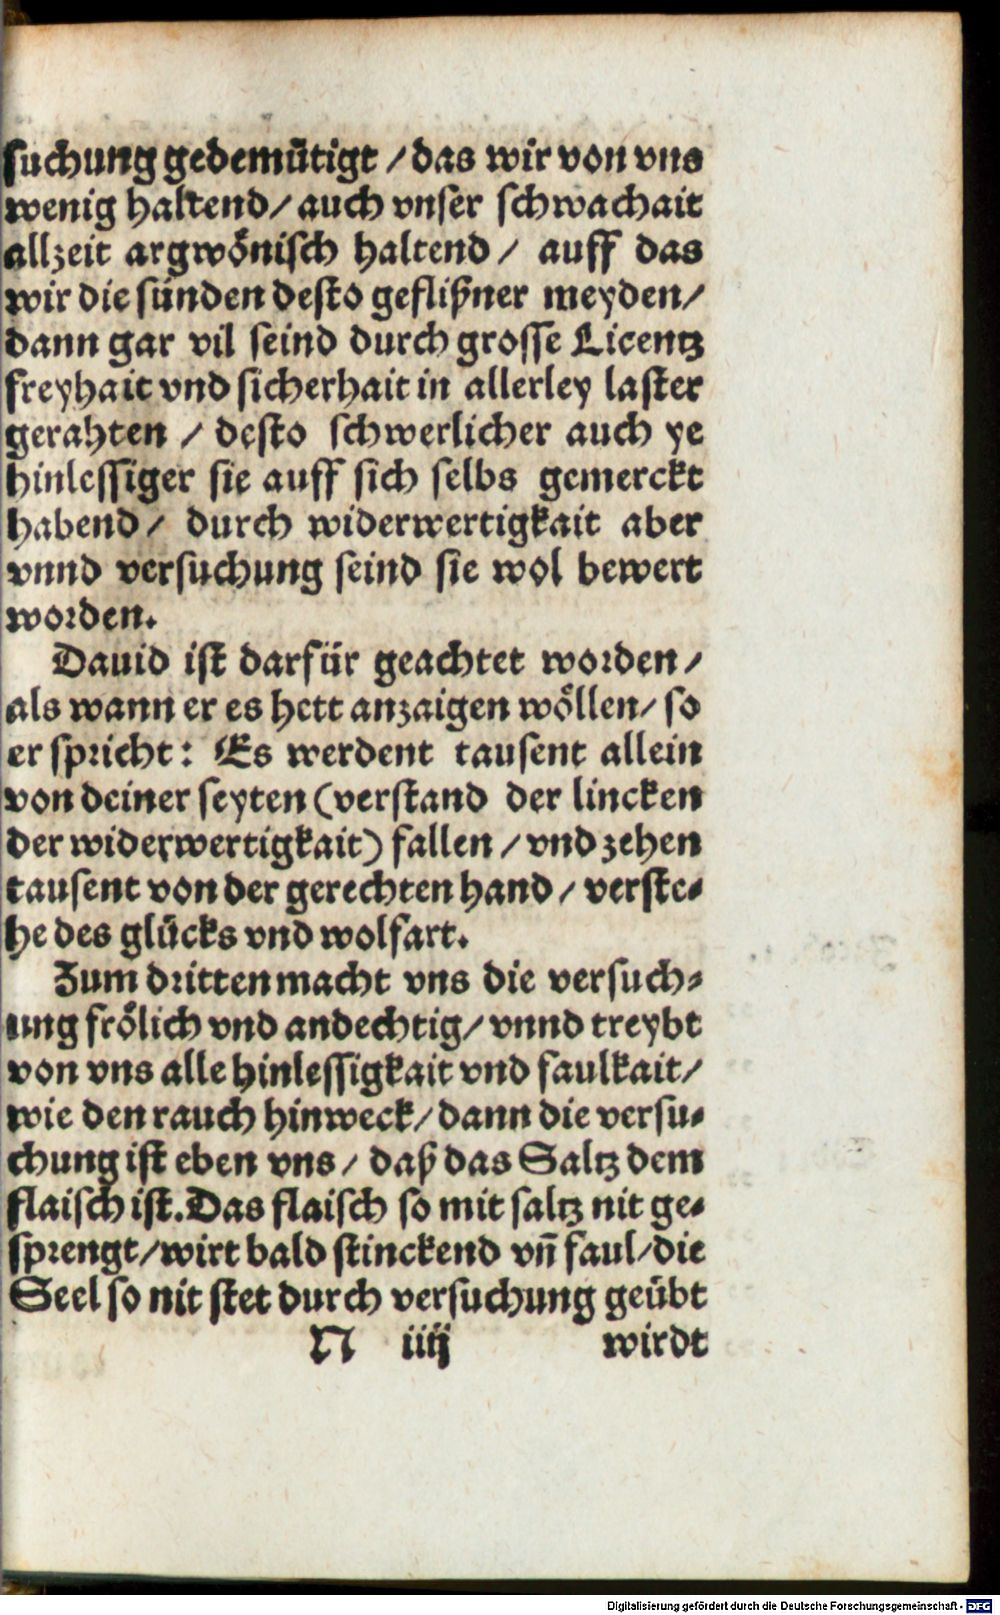 suchung gedemütigt / das wir von vns
wenig haltend / auch vnser schwachait
allzeit argwönisch haltend / auff das
wir die sünden desto geflißner meyden /
dann gar vil seind durch grosse Licentz
freyhait vnd sicherhait in allerley laster
gerahten / desto schwerlicher auch ye
hinlessiger sie auff sich selbs gemerckt
habend / durch widerwertigkait aber
vnnd versuchung seind sie wol bewert
worden.
Dauid ist darfür geachtet worden /
als wann er es hett anzaigen wöllen / so
er spricht: Es werdent tausent allein
von deiner seyten (verstand der lincken
der widerwertigkait) fallen / vnd zehen
tausent von der gerechten hand / verste⸗
he des glücks vnd wolfart.
Zum dritten macht vns die versuch⸗
ung frölich vnd andechtig / vnnd treybt
von vns alle hinlessigkait vnd faulkait /
wie den rauch hinweck / dann die versu⸗
chung ist eben vns / daß das Saltz dem
flaisch ist. Das flaisch so mit saltz nit ge⸗
sprengt / wirt bald stinckend vñ faul / die
Seel so nit stet durch versuchung geübt
N iiij wirdt
Digitalisierung gefördert durch die Deutsche Forschungsgemeinschaft - DFG